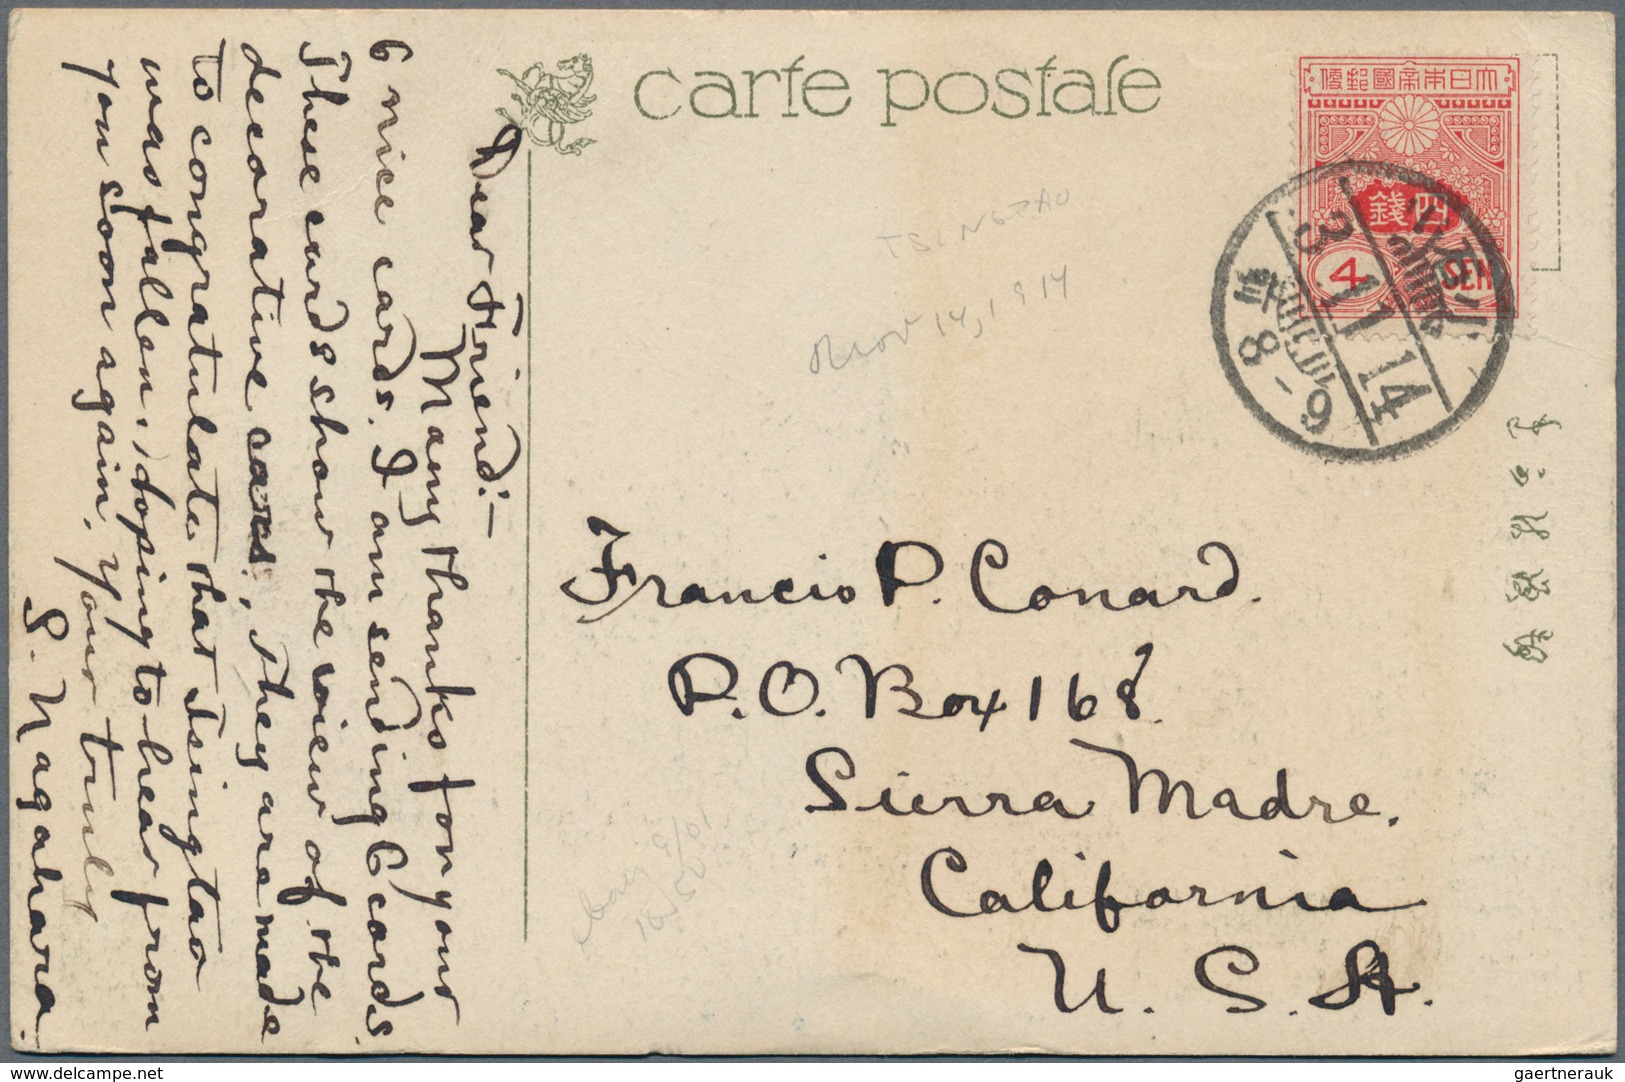 carte postale
大日本帝國郵便
四錢
4 SEN
3 11 14
8-9
Dear Friend:—
Many thanks for your
6 nice cards. I am sending 6 cards.
These cards show the view of the
decorative cars, they are made
to congratulate that Tsingtao
was fallen, hoping to hear from
you soon again, your truly
S. Nagahara.
TSINGTAO
Nov 14, 1914
Francis P. Conard.
P.O. Box 168.
Sierra Madre.
California
U. S. A.
ebay 9/01
16.50
gaertnerauk